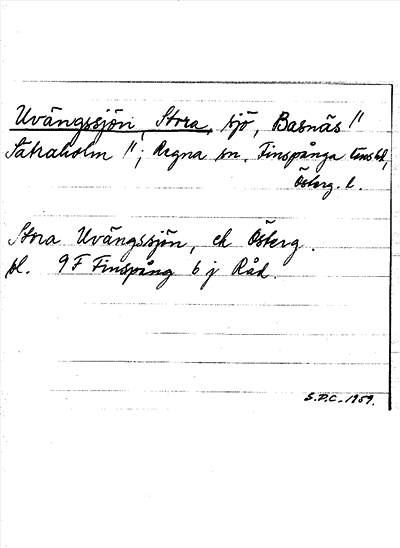 Uvängssjön, Stora, sjö, Basnäs 1/1
Säteraholm 1/1; Regna sn. Finspånga läns hd,
Österg. l.
Stora Uvängssjön, ek Österg.
bl. 9 F Finspång 6 j Råd.
S.D.C. 1959.